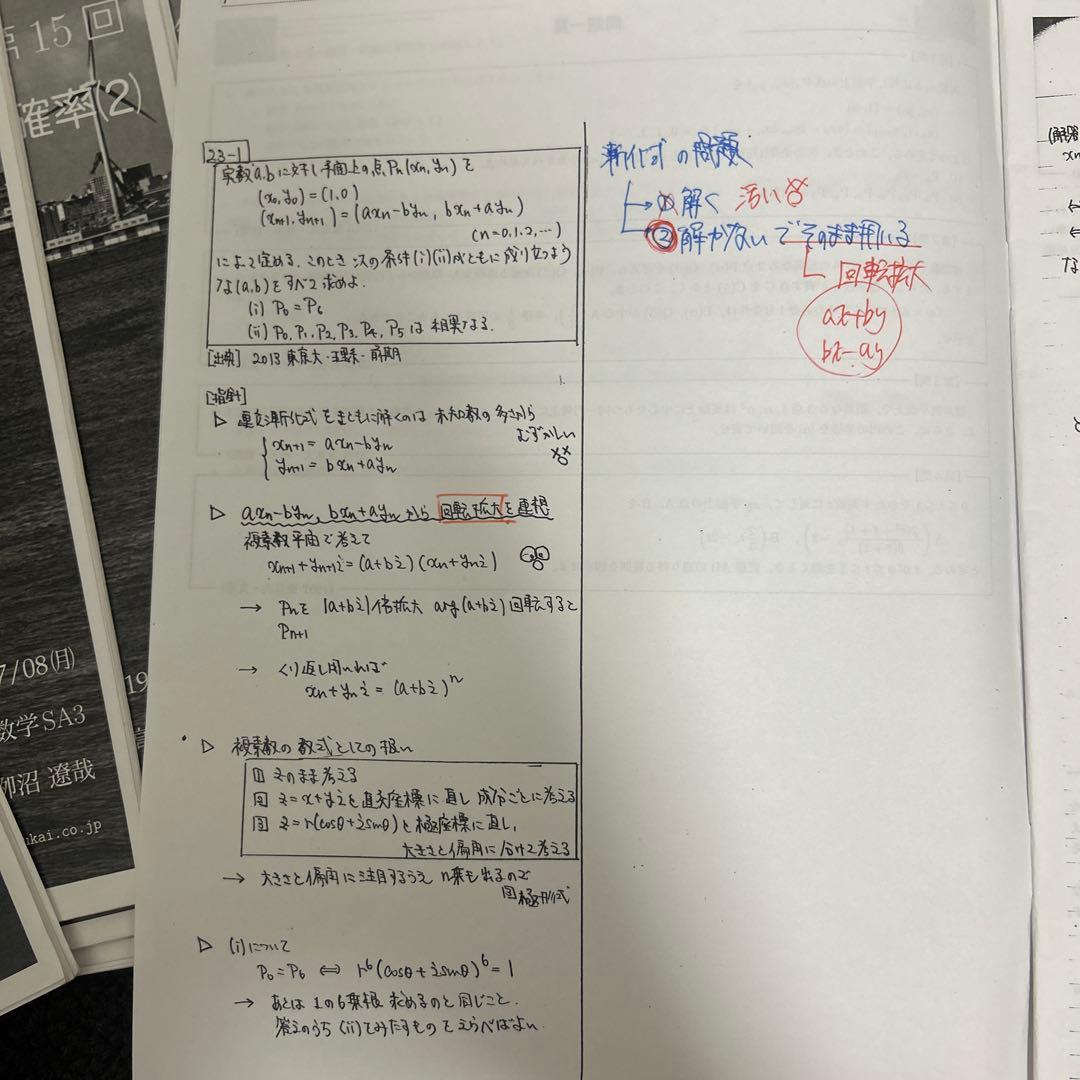 第15回
確率(2)
7/08(月)
数学SA3
柳沼 遼哉
ukai.co.jp
19
23-1
実数a,bに対し平面上の点Pn(xn,yn)を
(x0,y0)=(1,0)
(xn+1,yn+1)=(axn-byn, bxn+ayn)
(n=0,1,2,…)
によって定める。このとき次の条件(i)(ii)がともに成り立つよう
な(a,b)をすべて求めよ.
(i) P0=P6
(ii) P0,P1,P2,P3,P4,P5は相異なる.
[出典] 2013 東京大・理系・前期
[指針]
▷ 連立漸化式をまともに解くのは未知数の多さから
むずかしい
xn+1=axn-byn
yn+1=bxn+ayn
▷ axn-byn, bxn+aynから回転拡大を連想
複素数平面で考えて
xn+1+yn+1i=(a+bi)(xn+yni)
→ Pnを |a+bi|倍拡大 arg(a+bi)回転すると
Pn+1
→ くり返し用いれば
xn+yni=(a+bi)^n
▷ 複素数の数式としての扱い
1 そのまま考える
2 z=x+yiを直交座標に直し成分ごとに考える
3 z=r(cosθ+isinθ)と極座標に直し,
大きさと偏角に分けて考える
→ 大きさと偏角に注目するうえn乗も出るので
3極形式
▷ (i)について
P0=P6 ⇔ r^6(cosθ+isinθ)^6=1
→ あとは1の6乗根求めるのと同じこと.
答えのうち(ii)をみたすものをえらべばよい.
漸化式の問題
→① 解く
→② 解かないでそのまま用いる
回転拡大
ax+by
bx-ay